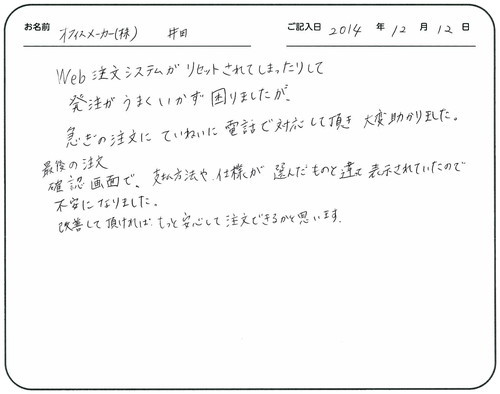 お名前 オフィスメーカー(株) 井田 ご記入日 2014 年 12 月 12 日
Web注文システムがリセットされてしまったりして
発注がうまくいかず困りましたが、
急ぎの注文にていねいに電話で対応して頂き大変助かりました。
最後の注文
確認画面で、支払方法や仕様が選んだものと違って表示されていたので
不安になりました。
改善して頂ければもっと安心して注文できるかと思います。